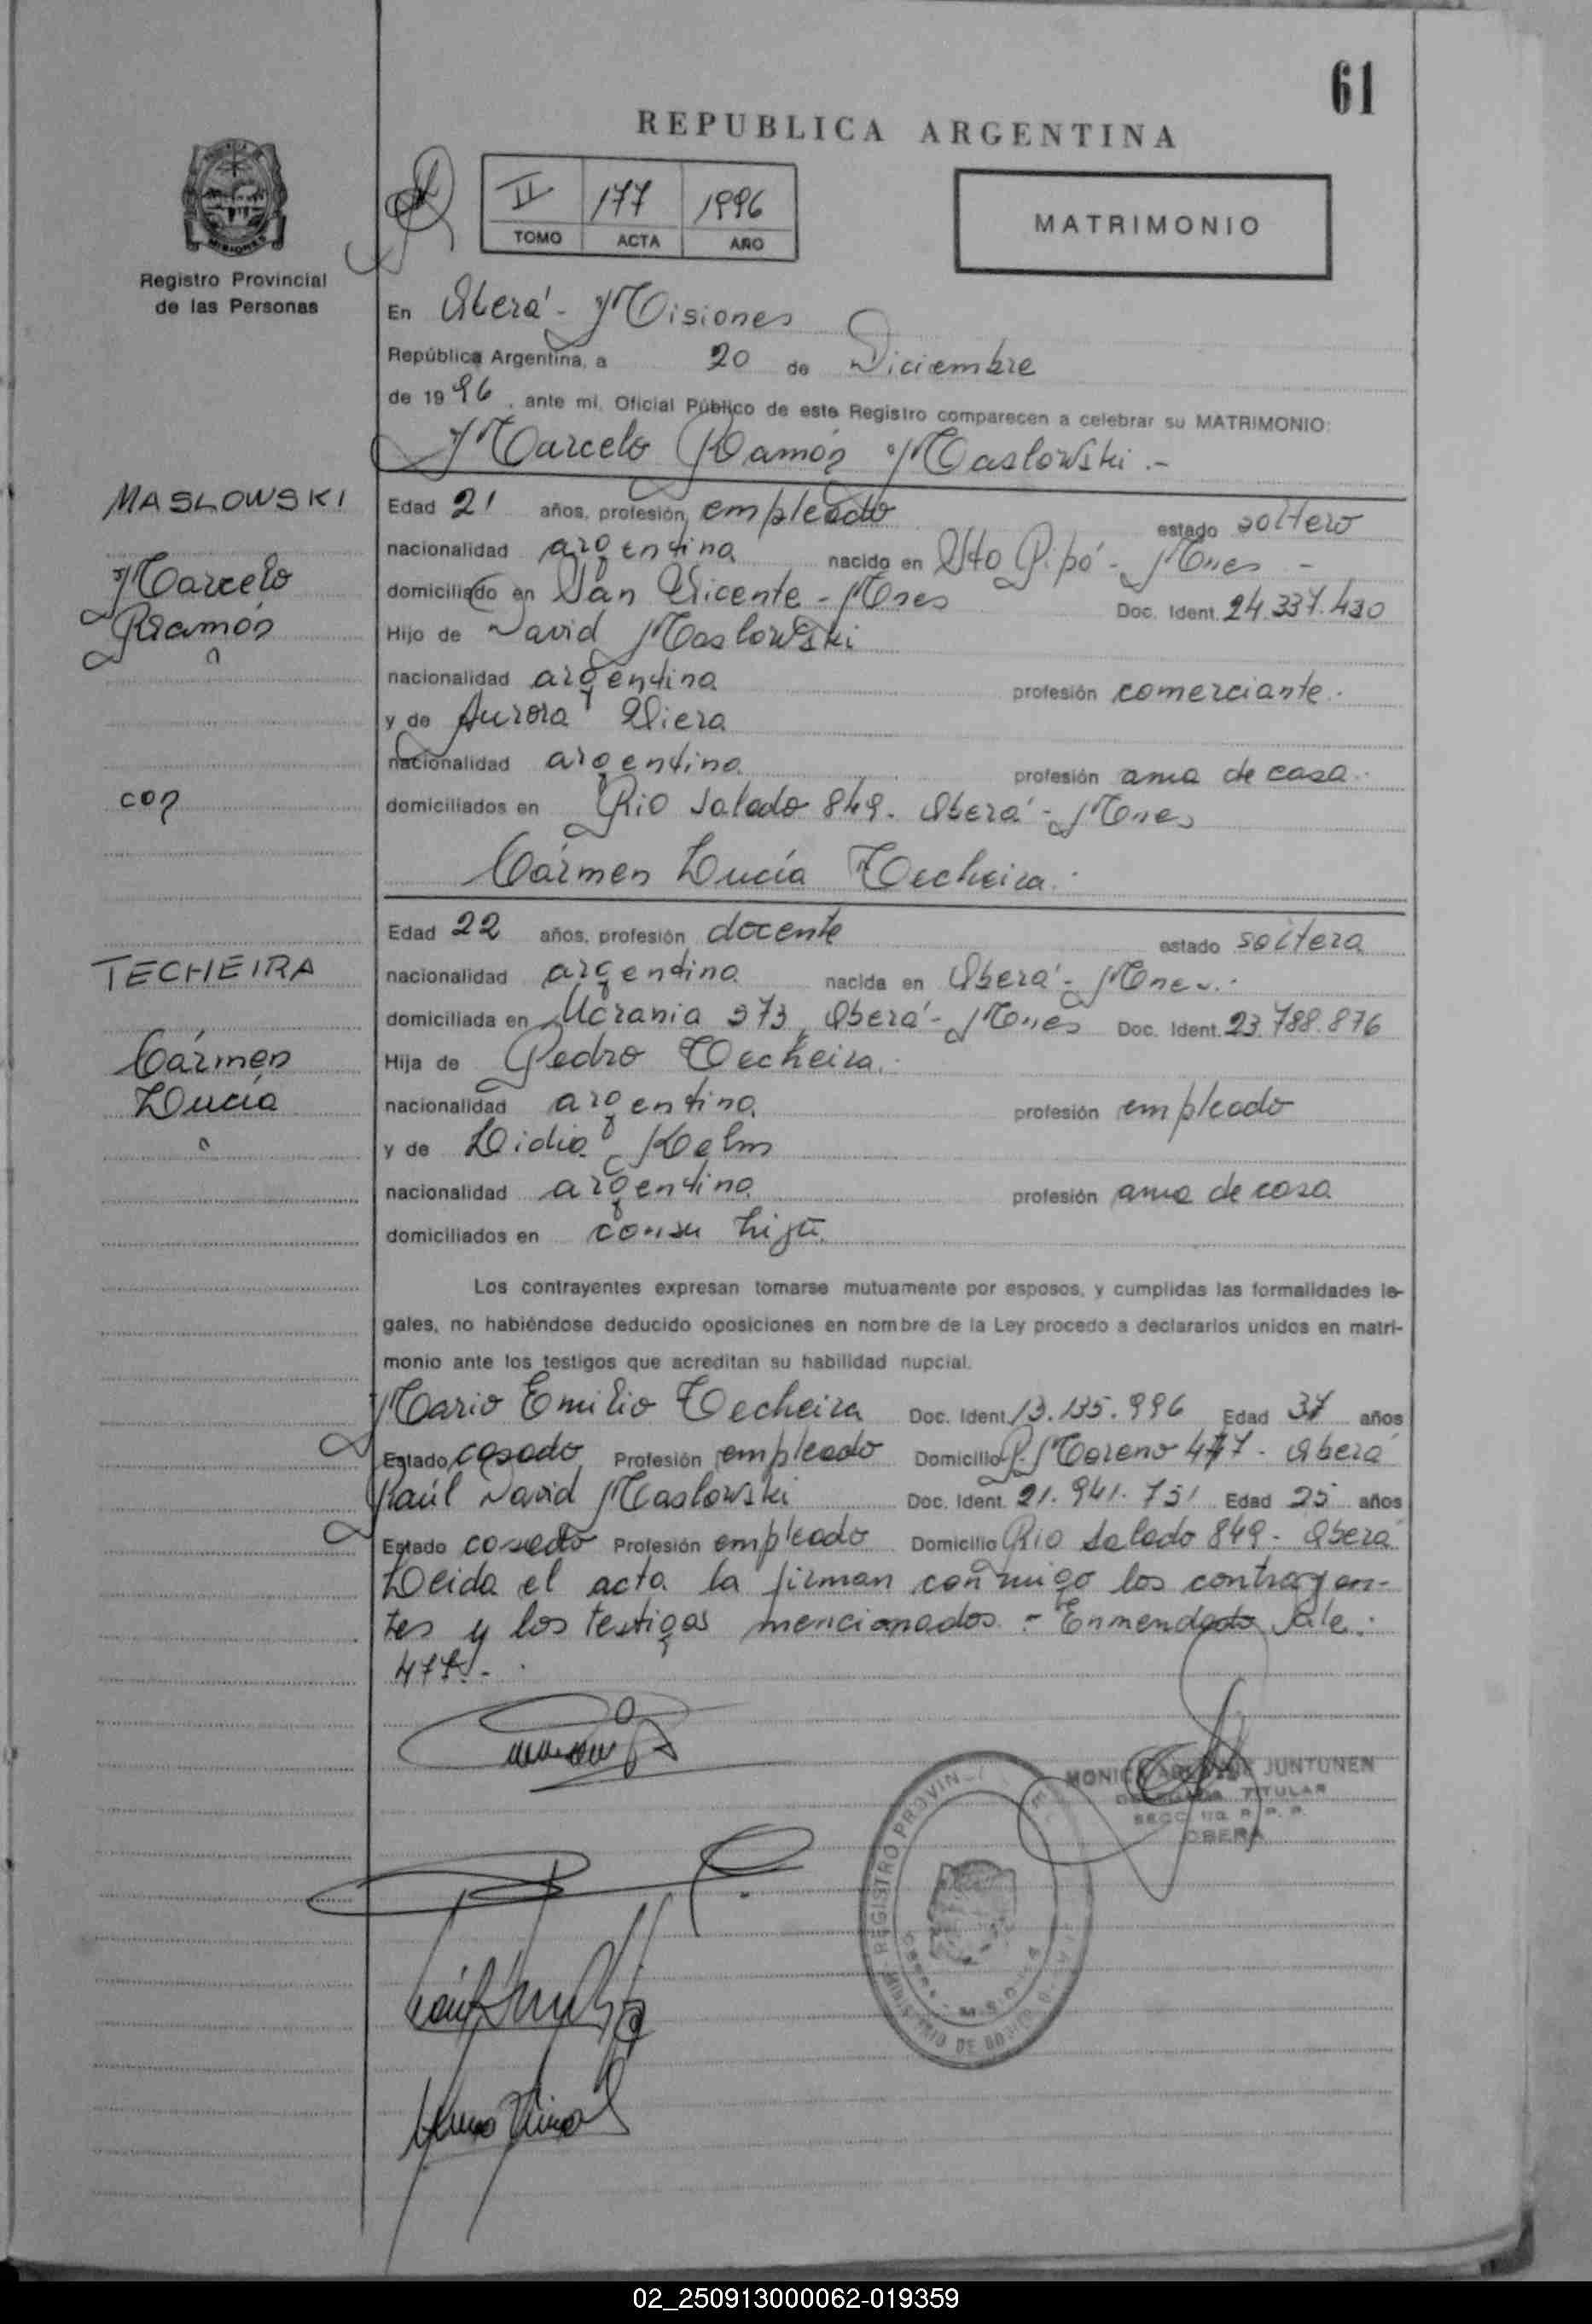 61
REPUBLICA ARGENTINA
II 177 1996
TOMO ACTA AÑO
MATRIMONIO
Registro Provincial
de las Personas
En Oberá - Misiones
República Argentina, a 20 de Diciembre
de 1996, ante mi, Oficial Público de este Registro comparecen a celebrar su MATRIMONIO:
Marcelo Ramón Maslowski.-
MASLOWSKI
Marcelo
Ramón
con
TECHEIRA
Cármen
Lucía
Edad 21 años, profesión empleado estado soltero
nacionalidad argentina nacido en Pto Pipó - Mnes -
domiciliado en San Vicente - Mnes Doc. Ident. 24.337.430
Hijo de David Maslowski
nacionalidad argentina profesión comerciante.
y de Aurora Viera
nacionalidad argentina profesión ama de casa.
domiciliados en Rio Salado 849. Oberá - Mnes
Cármen Lucía Techeira.
Edad 22 años, profesión docente estado soltera
nacionalidad argentina nacida en Oberá - Mnes.
domiciliada en Ucrania 373, Oberá - Mnes Doc. Ident. 23.788.876
Hija de Pedro Techeira.
nacionalidad argentina profesión empleado
y de Lidia
nacionalidad argentina profesión ama de casa
domiciliados en con su hija.
Los contrayentes expresan tomarse mutuamente por esposos, y cumplidas las formalidades le-
gales, no habiéndose deducido oposiciones en nombre de la Ley procedo a declararlos unidos en matri-
monio ante los testigos que acreditan su habilidad nupcial.
Mario Emilio Techeira Doc. Ident. 13.135.996 Edad 37 años
Estado casado Profesión empleado Domicilio P. Moreno 477 - Oberá
Raúl David Maslowski Doc. Ident. 21.941.751 Edad 25 años
Estado casado Profesión empleado Domicilio Rio Salado 849 - Oberá
Leida el acta la firman conmigo los contrayen-
tes y los testigos mencionados. - Enmendado Vale:
477.-
MONICA JUNTUNEN
TITULAR
OBERA
REGISTRO PROVIN
MINISTERIO DE
02_250913000062-019359